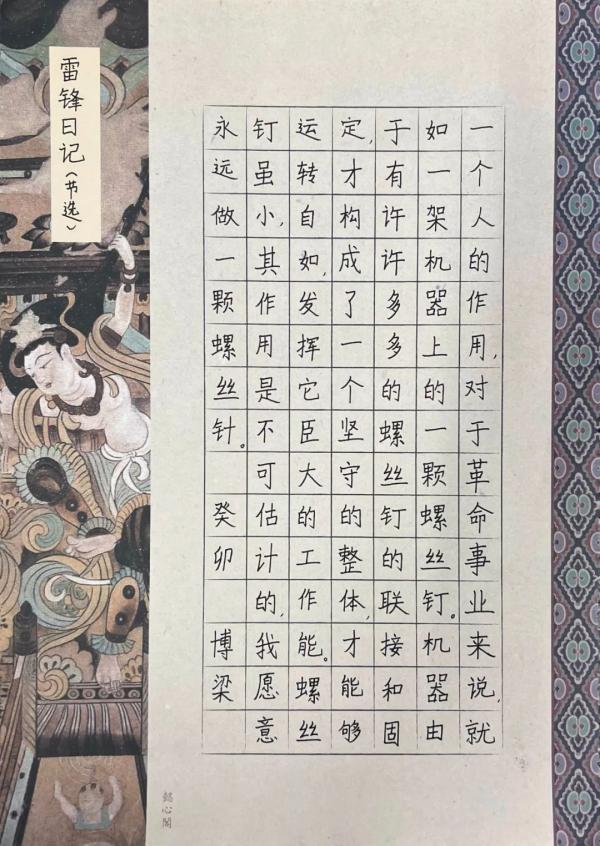 雷锋日记（节选）
一个人的作用，对于革命事业来说，就
如一架机器上的一颗螺丝钉。机器由
于有许许多多的螺丝钉的联接和固
定，才构成了一个坚守的整体，才能够
运转自如，发挥它臣大的工作能。螺丝
钉虽小，其作用是不可估计的，我愿意
永远做一颗螺丝针。 癸卯 博梁
懿心阁